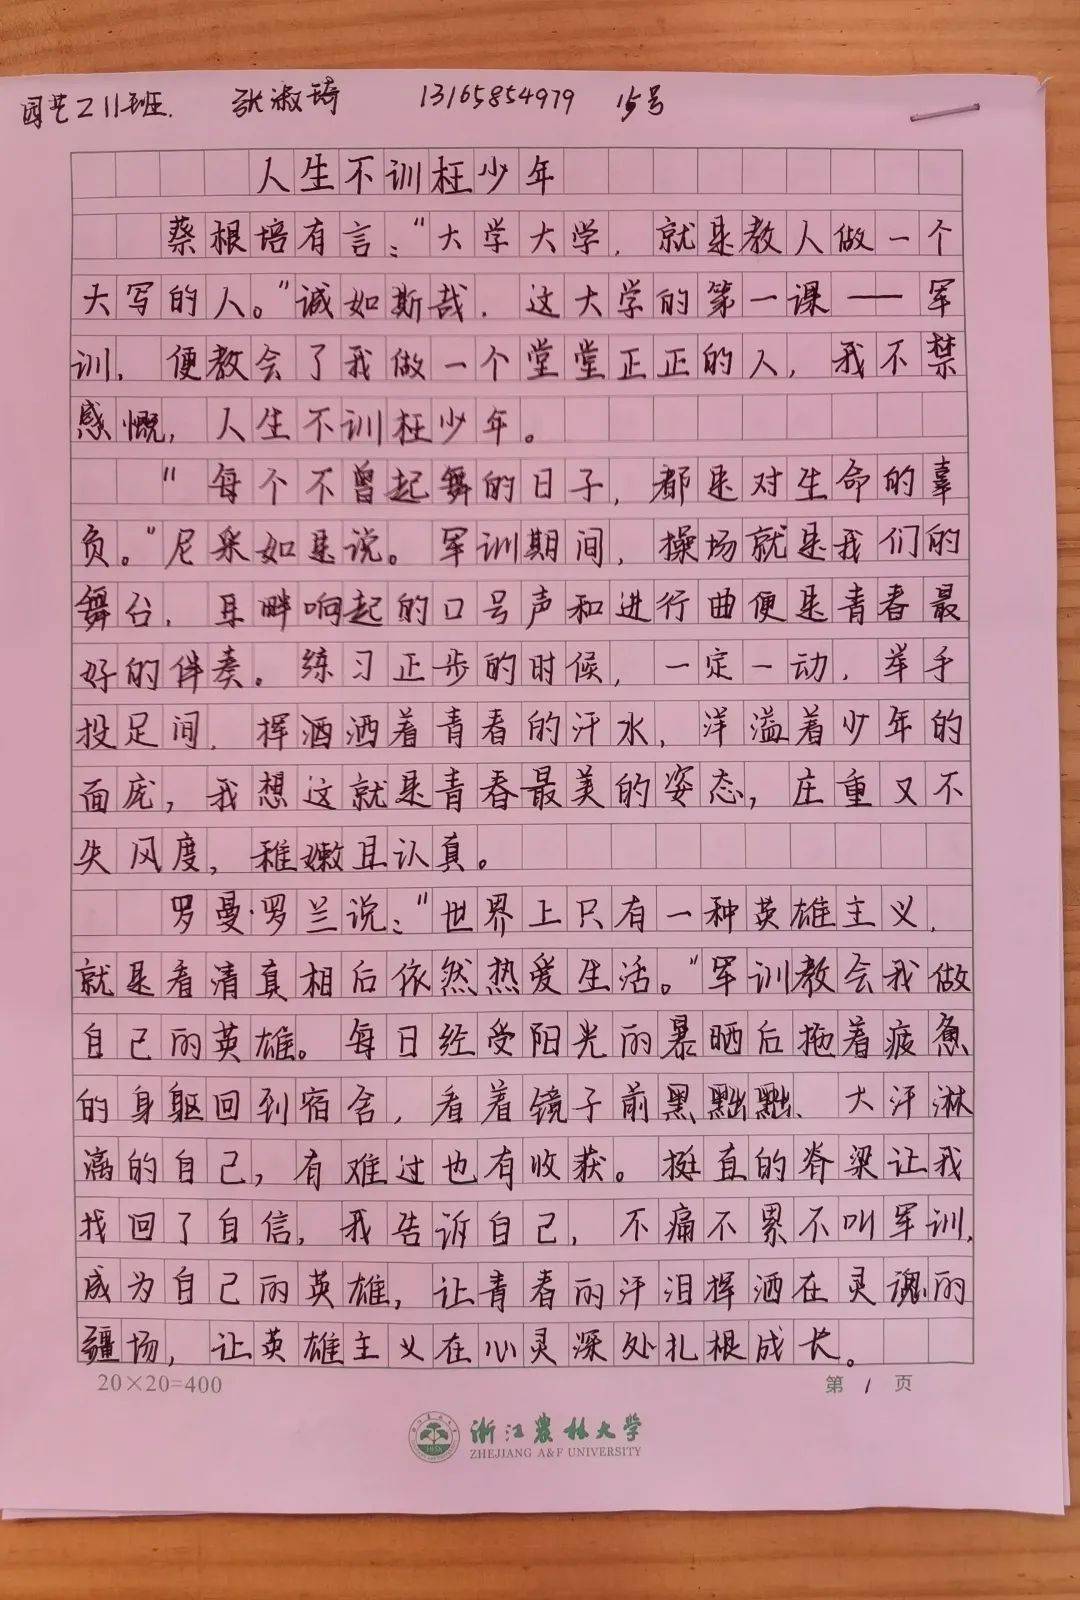 园艺211班. 张淑琦 13165854979 15号
人生不训枉少年
蔡根培有言:“大学大学,就是教人做一个
大写的人。”诚如斯哉,这大学的第一课——军
训,便教会了我做一个堂堂正正的人,我不禁
感慨,人生不训枉少年。
“每个不曾起舞的日子,都是对生命的辜
负。”尼采如是说。军训期间,操场就是我们的
舞台,耳畔响起的口号声和进行曲便是青春最
好的伴奏。练习正步的时候,一定一动,举手
投足间,挥洒洒着青春的汗水,洋溢着少年的
面庞,我想这就是青春最美的姿态,庄重又不
失风度,稚嫩且认真。
罗曼·罗兰说:“世界上只有一种英雄主义,
就是看清真相后依然热爱生活。”军训教会我做
自己的英雄。每日经受阳光的暴晒后拖着疲惫
的身躯回到宿舍,看着镜子前黑黜黜、大汗淋
漓的自己,有难过也有收获。挺直的脊梁让我
找回了自信,我告诉自己,不痛不累不叫军训,
成为自己的英雄,让青春的汗泪挥洒在灵魂的
疆场,让英雄主义在心灵深处扎根成长。
20×20=400 第 1 页
浙江农林大学
ZHEJIANG A&F UNIVERSITY